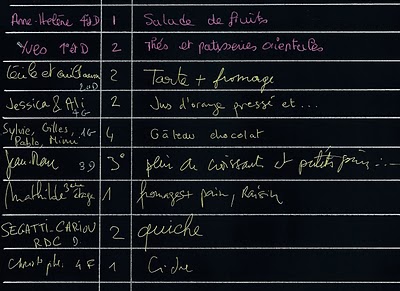 Anne-Hélène 4è D 1 Salade de fruits
Yves 1er D 2 Thés et patisseries orientales
Cécile et 2è D 2 Tarte + fromage
Jessica & Ali 4G 2 Jus d'orange pressé et ...
Sylvie, Gilles, Pablo, Mimi 1G 4 Gâteau chocolat
Jean-Marc 3D 3 plein de croissants et petits pains...
Mathilde 3ème étage 1 fromages + pain, Raisin
SEGATTI-CARIOU RDC D 2 quiche
Christophe 4F 1 Cidre